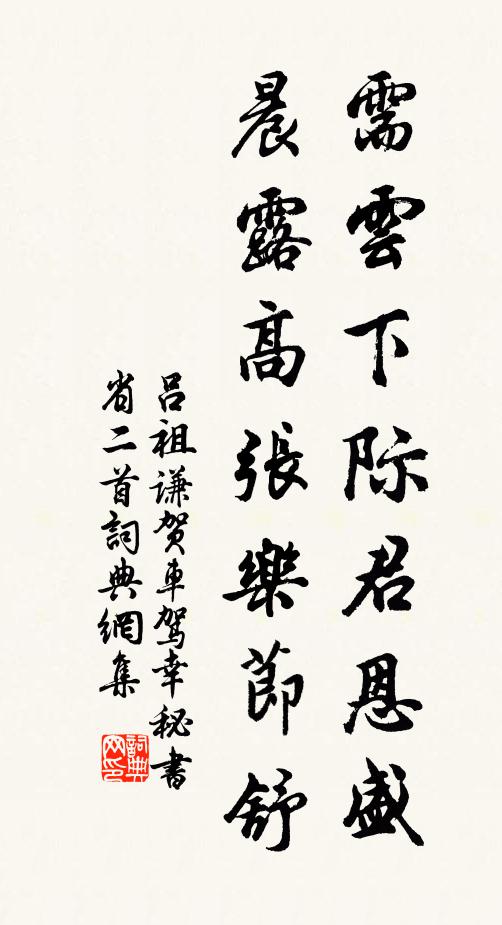 需雲下際君恩盛
晨露高張樂節舒
呂祖謙賀車駕幸秘書
省二首詞典網集
詞典
网印